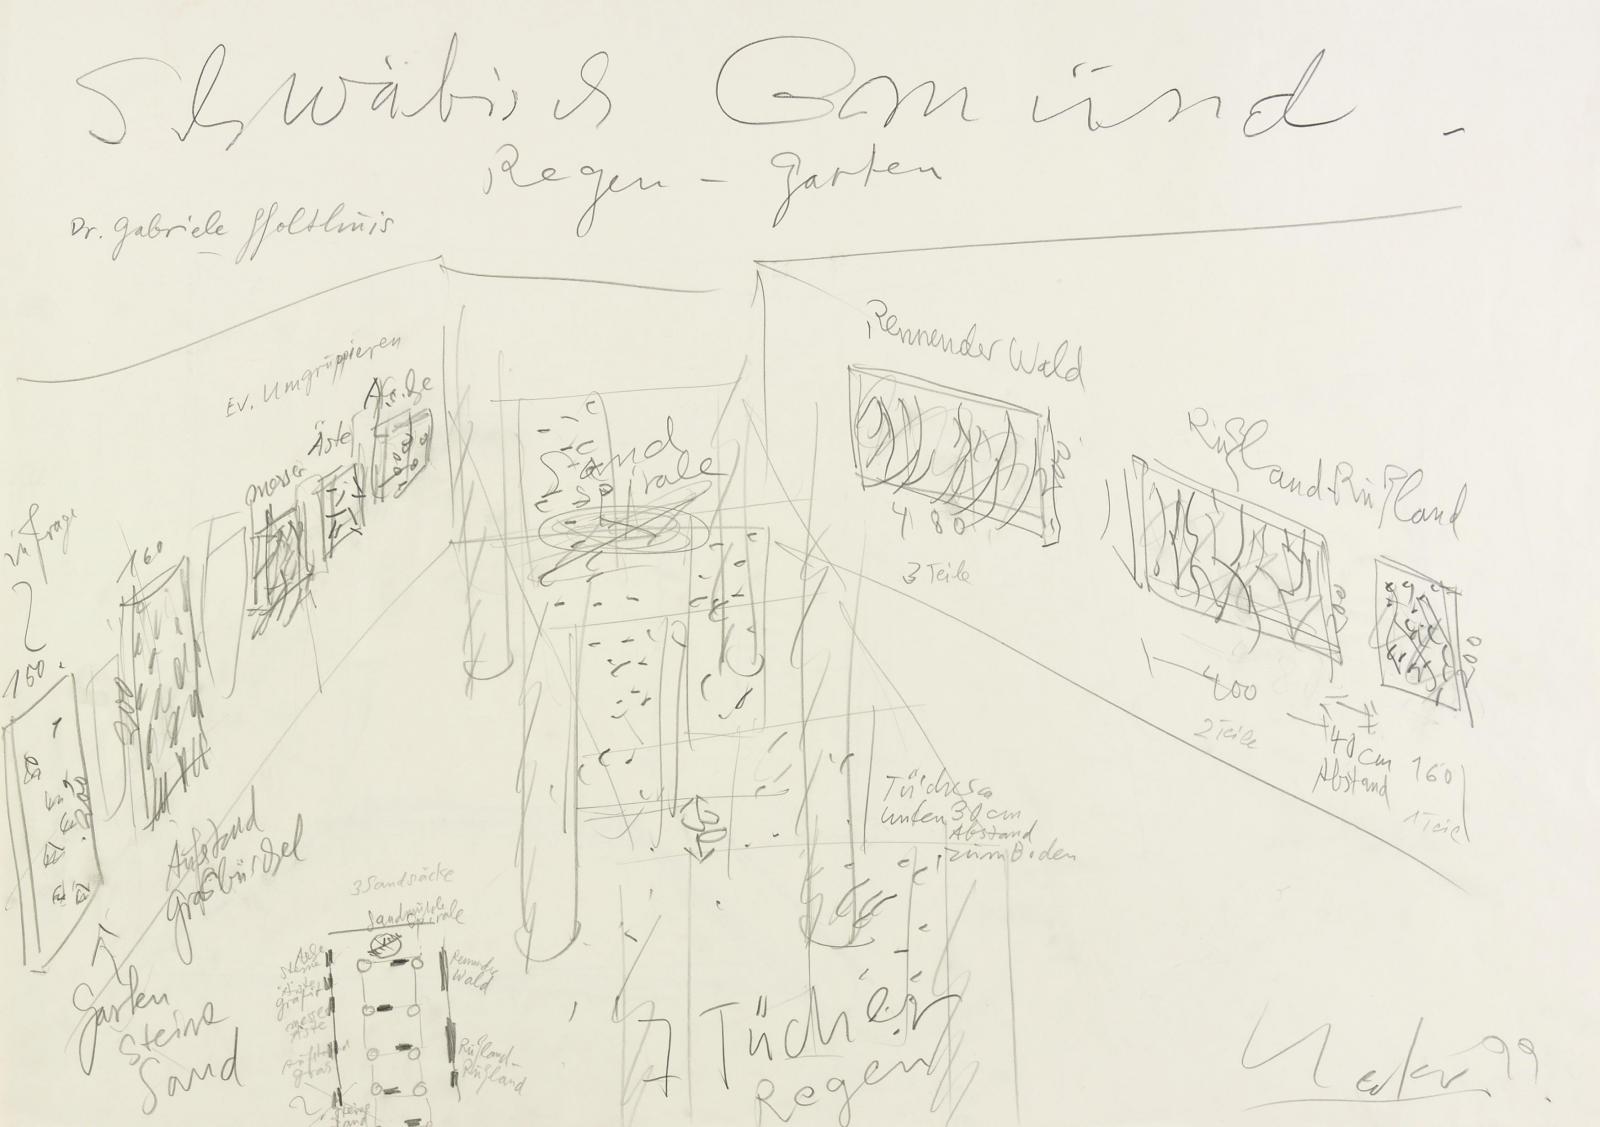 Schwäbisch Gmünd.
Regen - Garten
Dr. Gabriele Holthuis
Ev. Umgruppieren
Asche
Äste
Messer
in Frage
160
200
150.
200
Aufstand
Garten
Steine
Sand
Sand
Spirale
Rennender Wald
200
480
3 Teile
Rußland-Rußland
200
400
2 Teile
200
40 cm
Abstand
160
1 Teil
Tücher
unten 30 cm
Abstand
zum Boden
30
7 Tücher
Regen
3 Sandsäcke
Sandmühle
Spirale
Asche
Steine
Äste
Messer
Äste
Aufstand
Gras
Steine
Sand
Rennender
Wald
Rußland-
Rußland
Uecker 99.